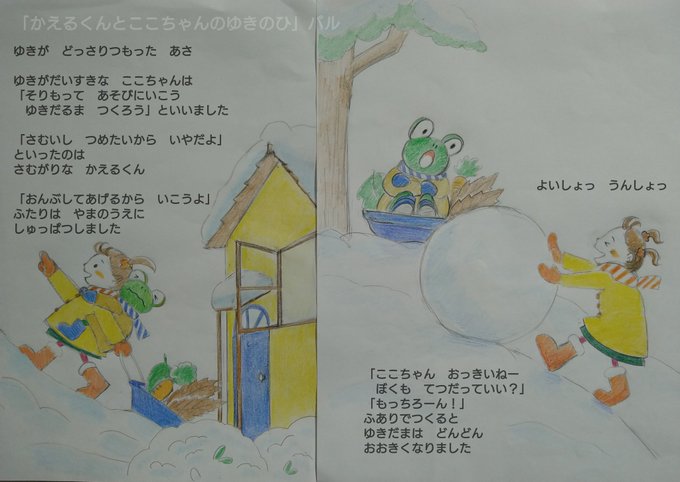 「かえるくんとここちゃんのゆきのひ」パル
ゆきが　どっさりつもった　あさ
ゆきがだいすきな　ここちゃんは
「そりもって　あそびにいこう
ゆきだるま　つくろう」といいました
「さむいし　つめたいから　いやだよ」
といったのは
さむがりな　かえるくん
「おんぶしてあげるから　いこうよ」
ふたりは　やまのうえに
しゅっぱつしました
よいしょっ　うんしょっ
「ここちゃん　おっきいねー
ぼくも　てつだっていい？」
「もっちろーん！」
ふありでつくると
ゆきだまは　どんどん
おおきくなりました